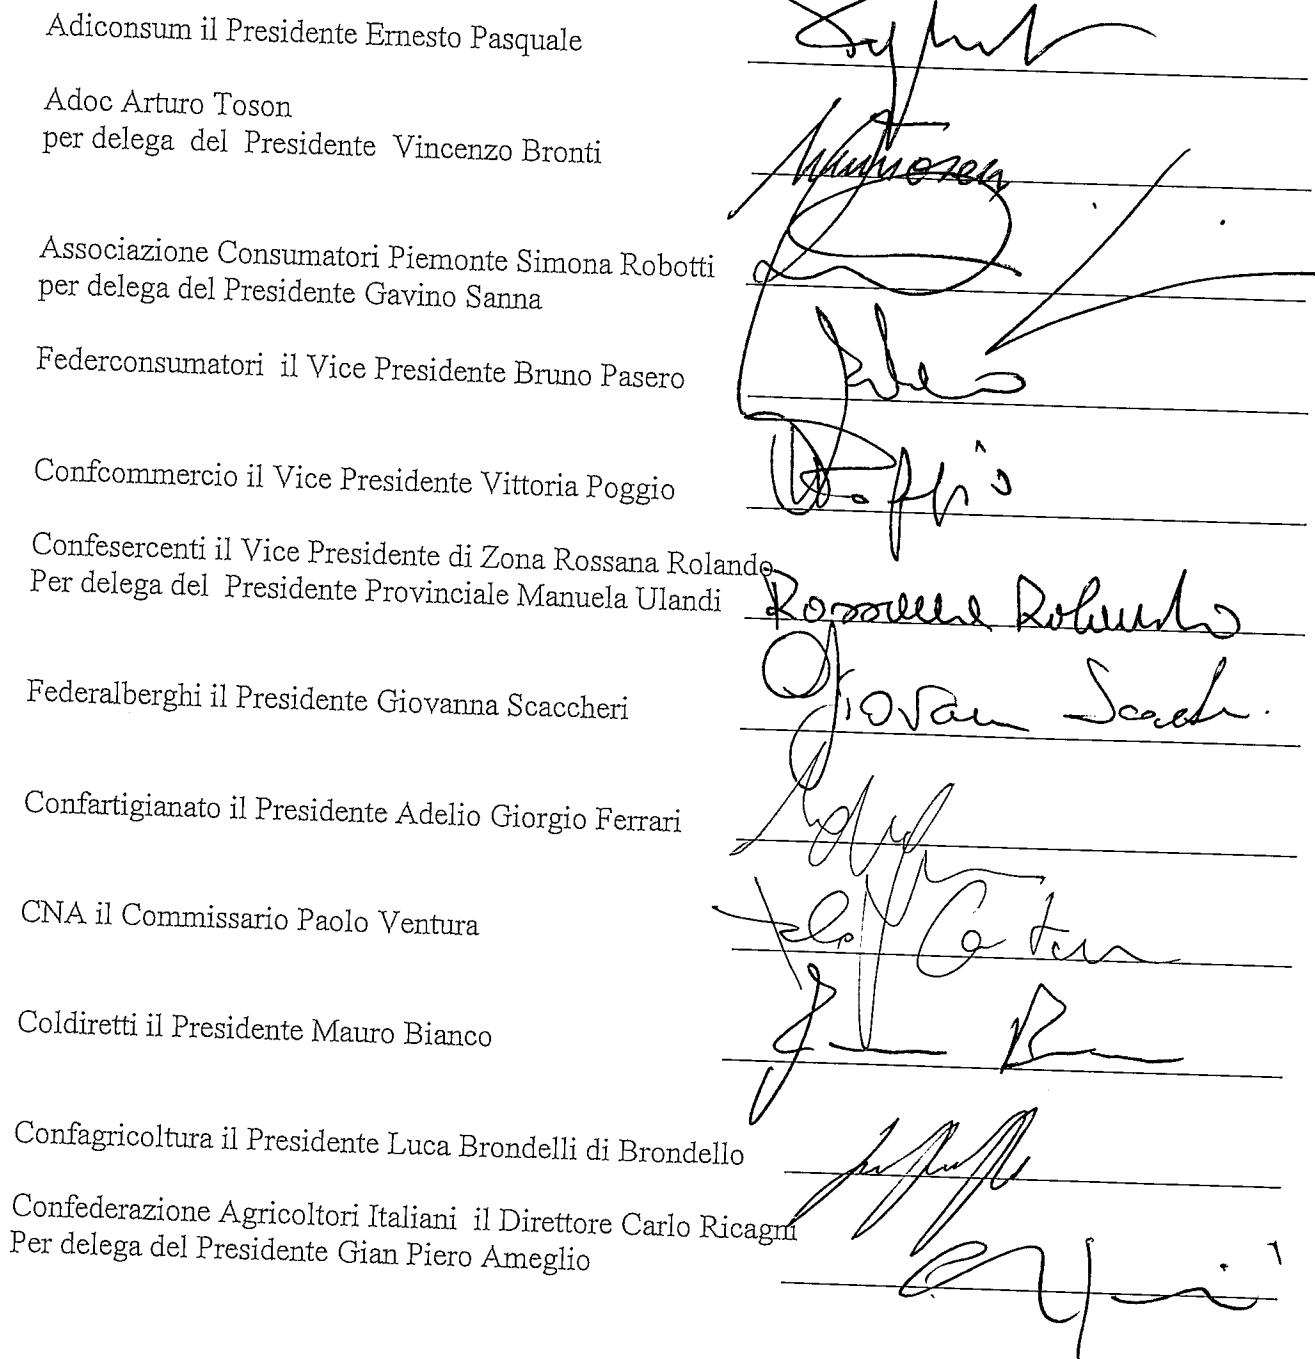 Adiconsum il Presidente Ernesto Pasquale
Adoc Arturo Toson
per delega del Presidente Vincenzo Bronti
Associazione Consumatori Piemonte Simona Robotti
per delega del Presidente Gavino Sanna
Federconsumatori il Vice Presidente Bruno Pasero
Confcommercio il Vice Presidente Vittoria Poggio
Confesercenti il Vice Presidente di Zona Rossana Rolando
Per delega del Presidente Provinciale Manuela Ulandi
Rossana Rolando
Federalberghi il Presidente Giovanna Scaccheri
Confartigianato il Presidente Adelio Giorgio Ferrari
CNA il Commissario Paolo Ventura
Coldiretti il Presidente Mauro Bianco
Confagricoltura il Presidente Luca Brondelli di Brondello
Confederazione Agricoltori Italiani il Direttore Carlo Ricagni
Per delega del Presidente Gian Piero Ameglio